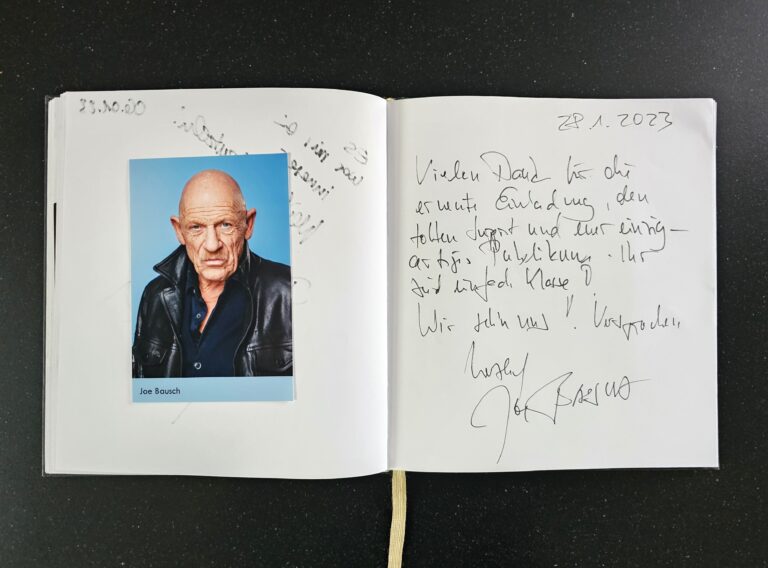 Joe Bausch
28.1.2023
Vielen Dank für die
erneute Einladung, den
tollen Support und euer einzig-
artiges Publikum. Ihr
seid einfach Klasse!
Wir sehn uns! Versprochen
Joe Bausch